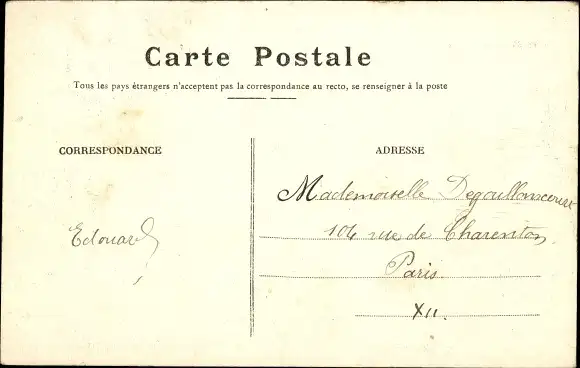 Carte Postale
Tous les pays étrangers n'acceptent pas la correspondance au recto, se renseigner à la poste
CORRESPONDANCE
ADRESSE
Mademoiselle Degoullonscourt
104 rue de Charenton
Edouard
Paris
XII.